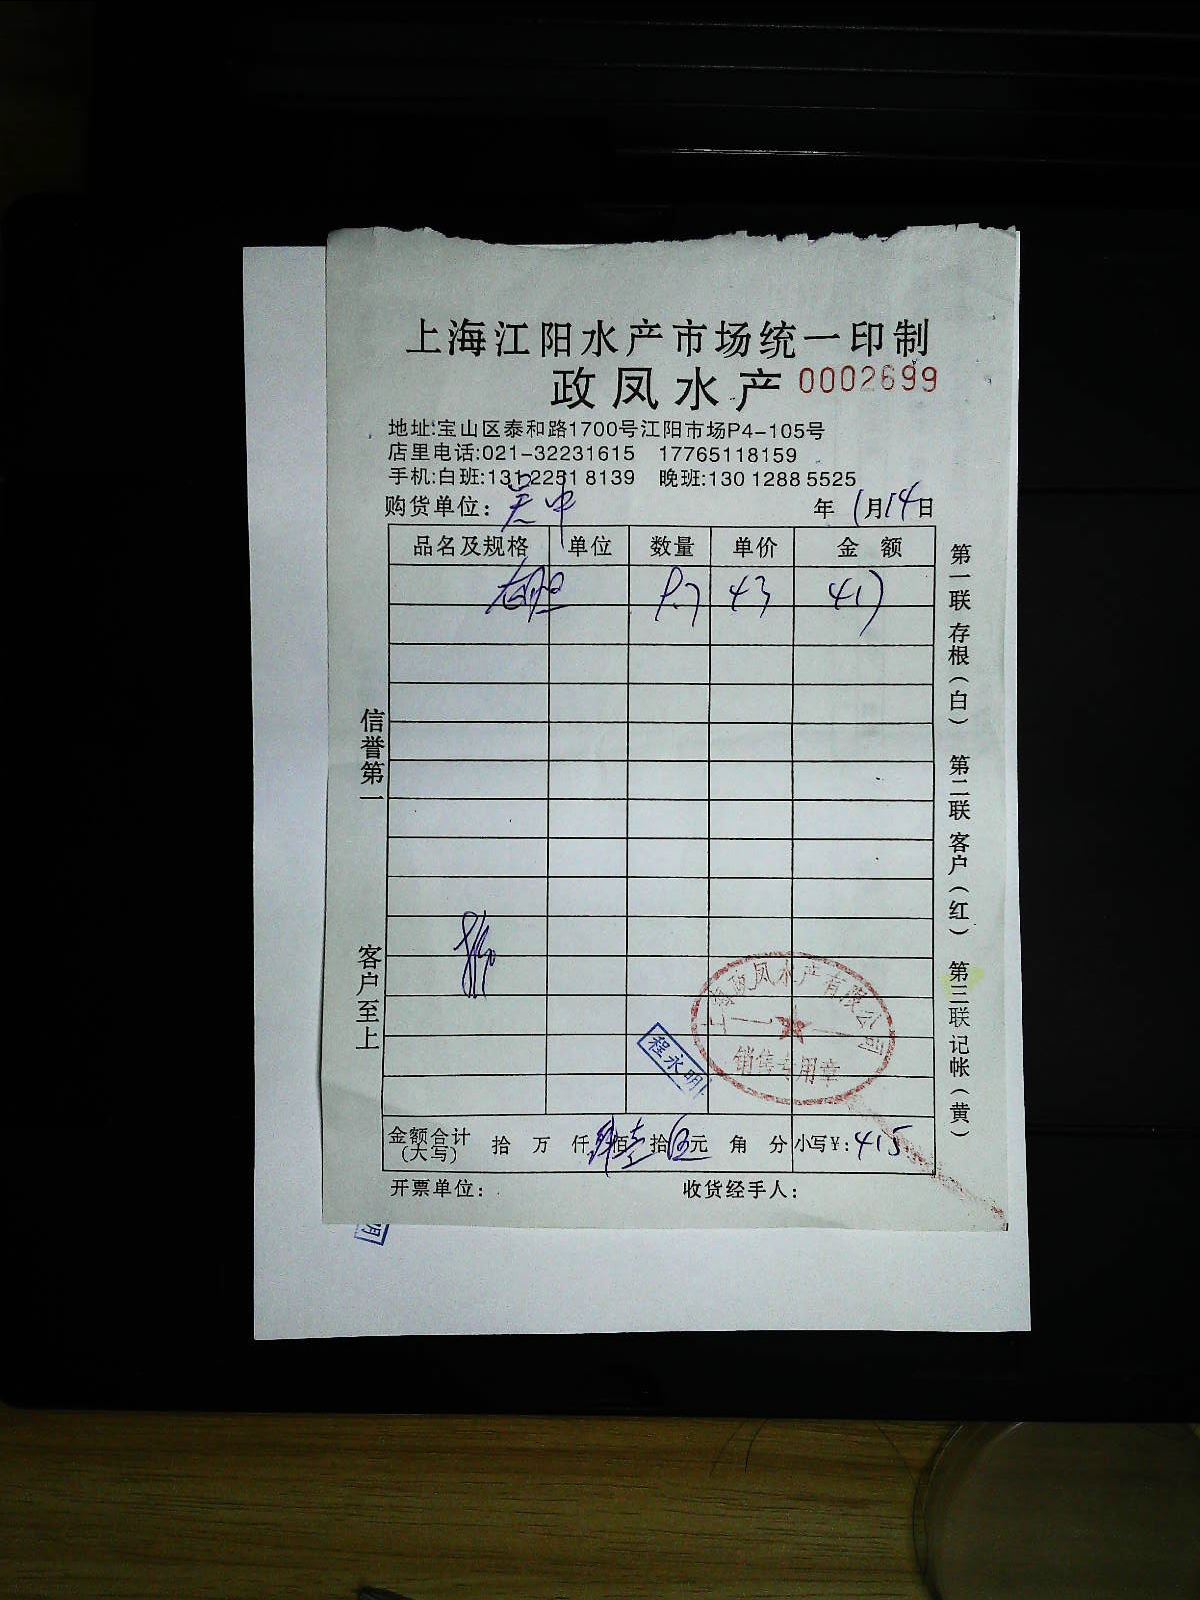 上海江阳水产市场统一印制
政凤水产 0002699
地址:宝山区泰和路1700号江阳市场P4-105号
店里电话:021-32231615 17765118159
手机:白班:131 2251 8139 晚班:130 1288 5525
购货单位: 吴中 年 1月14日
品名及规格 单位 数量 单价 金额
9.7 43 417
信誉第一
客户至上
第一联存根(白) 第二联客户(红) 第三联记帐(黄)
上海政凤水产有限公司
销售专用章
程永明
金额合计(大写) 拾 万 仟 肆佰壹拾伍元 角 分 小写¥:415
开票单位: 收货经手人:
明